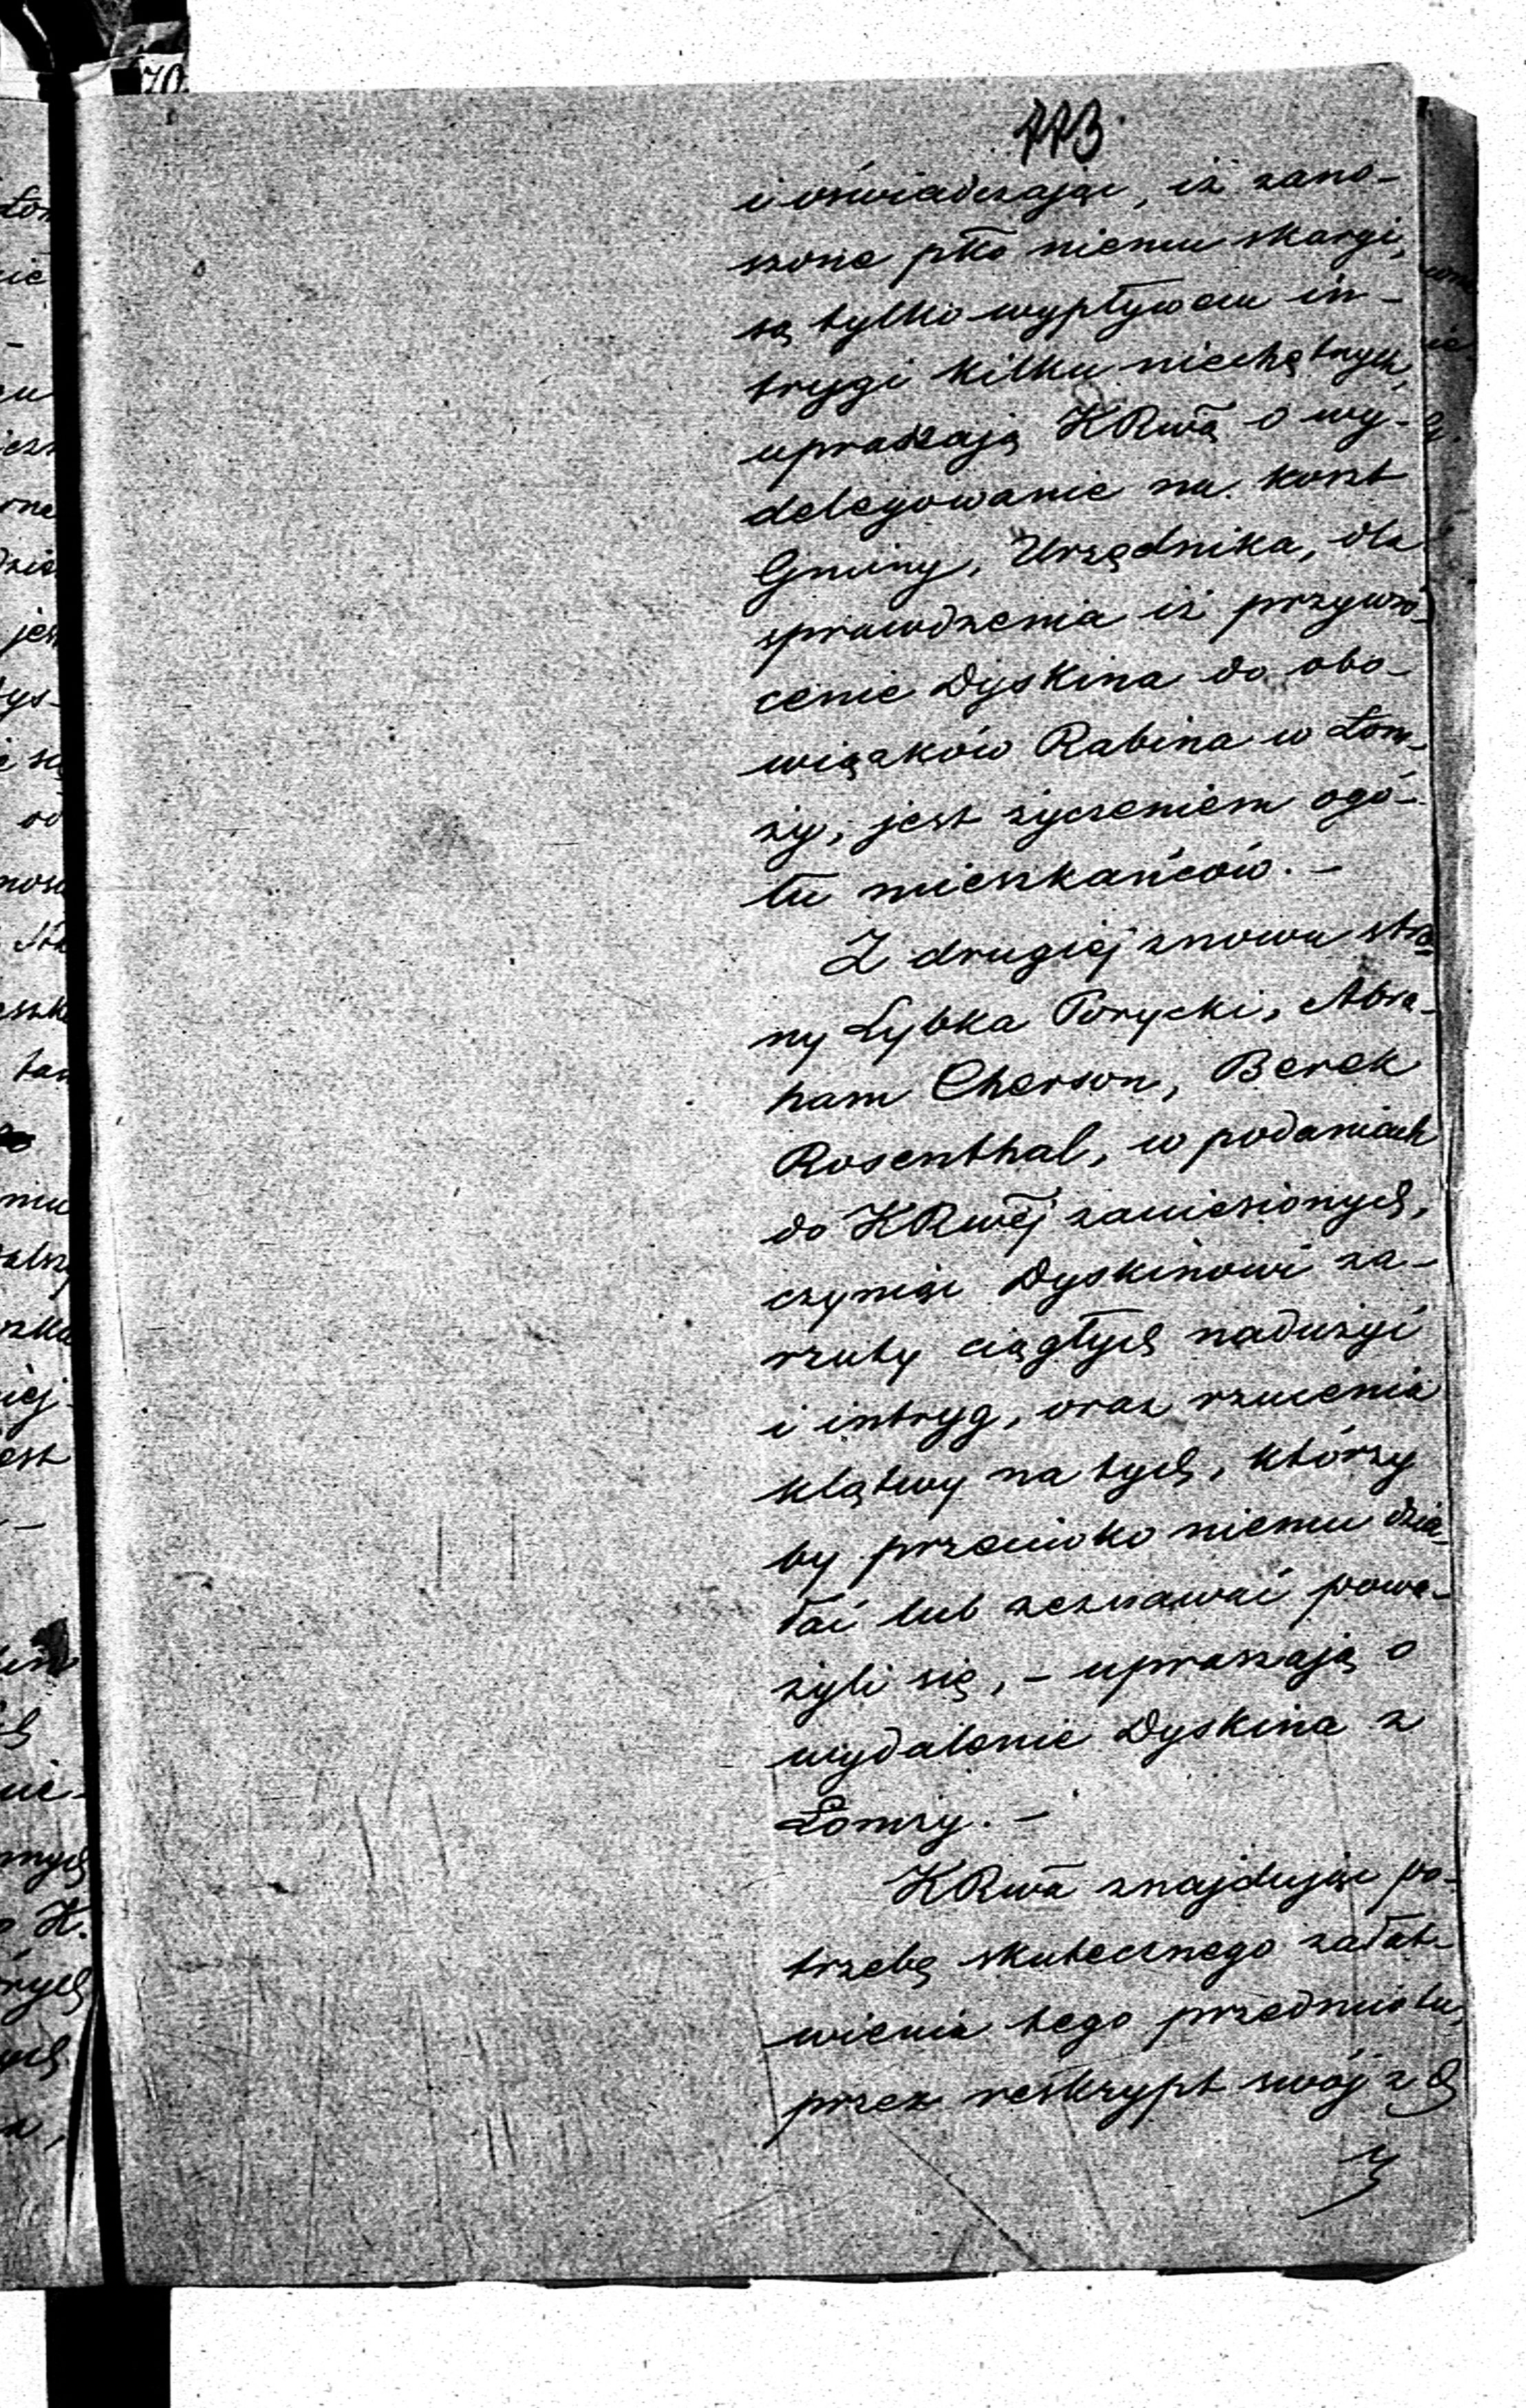 113.
i oświadczając, iż zano-
szone pko niemu skargi,
są tylko wypływem in-
trygi kilku niechętnych,
upraszają KRwã o wy-
delegowanie na koszt
Gminy, Urzędnika, dla
sprawdzenia iż przywró-
cenie Dyskina do obo-
wiązków Rabina w Łom-
ży, jest życzeniem ogó-
łu mieszkańców. -
Z drugiej znowu stro-
ny Lybka Porycki, Abra-
ham Cherson, Berek
Rosenthal, w podaniach
do KRwej zaniesionych,
czyniąc Dyskinowi za-
rzuty ciągłych nadużyć
i intryg, oraz rzucenia
klątwy na tych, którzy
by przeciwko niemu dzia-
łać lub zeznawać powa-
żyli się, - upraszają o
wydalenie Dyskina z
Łomży. -
KRwa znajdując po-
trzebę skutecznego załat-
wienia tego przedmiotu,
przez reskrypt swój z d